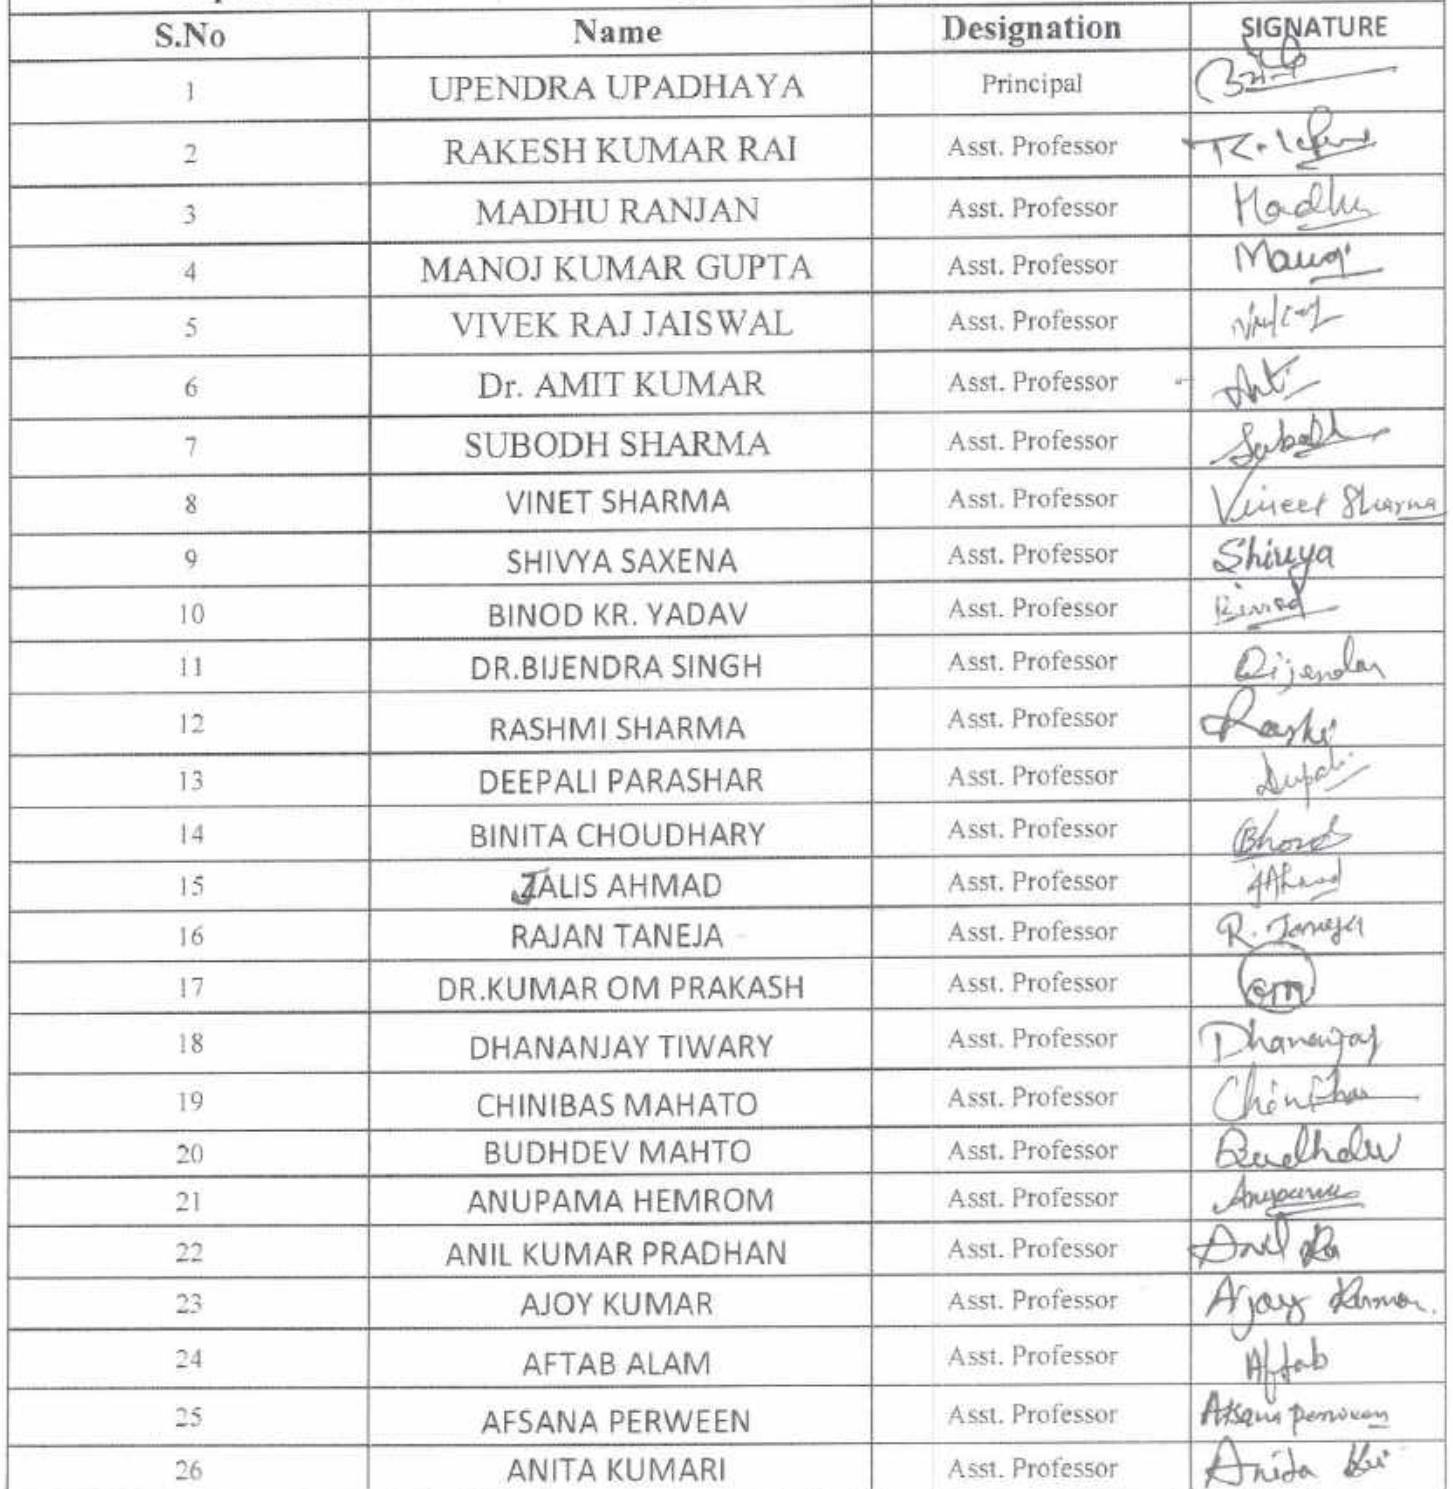 S.No Name Designation SIGNATURE
1 UPENDRA UPADHAYA Principal
2 RAKESH KUMAR RAI Asst. Professor
3 MADHU RANJAN Asst. Professor Madhu
4 MANOJ KUMAR GUPTA Asst. Professor Manoj
5 VIVEK RAJ JAISWAL Asst. Professor
6 Dr. AMIT KUMAR Asst. Professor
7 SUBODH SHARMA Asst. Professor Subodh
8 VINET SHARMA Asst. Professor Vineet Sharma
9 SHIVYA SAXENA Asst. Professor Shivya
10 BINOD KR. YADAV Asst. Professor Binod
11 DR.BIJENDRA SINGH Asst. Professor Bijendar
12 RASHMI SHARMA Asst. Professor
13 DEEPALI PARASHAR Asst. Professor
14 BINITA CHOUDHARY Asst. Professor
15 JALIS AHMAD Asst. Professor JAhmad
16 RAJAN TANEJA Asst. Professor R. Taneja
17 DR.KUMAR OM PRAKASH Asst. Professor om
18 DHANANJAY TIWARY Asst. Professor Dhananjay
19 CHINIBAS MAHATO Asst. Professor
20 BUDHDEV MAHTO Asst. Professor Budhdev
21 ANUPAMA HEMROM Asst. Professor Anupama
22 ANIL KUMAR PRADHAN Asst. Professor Anil
23 AJOY KUMAR Asst. Professor Ajoy Kumar.
24 AFTAB ALAM Asst. Professor Aftab
25 AFSANA PERWEEN Asst. Professor Afsana perween
26 ANITA KUMARI Asst. Professor Anita